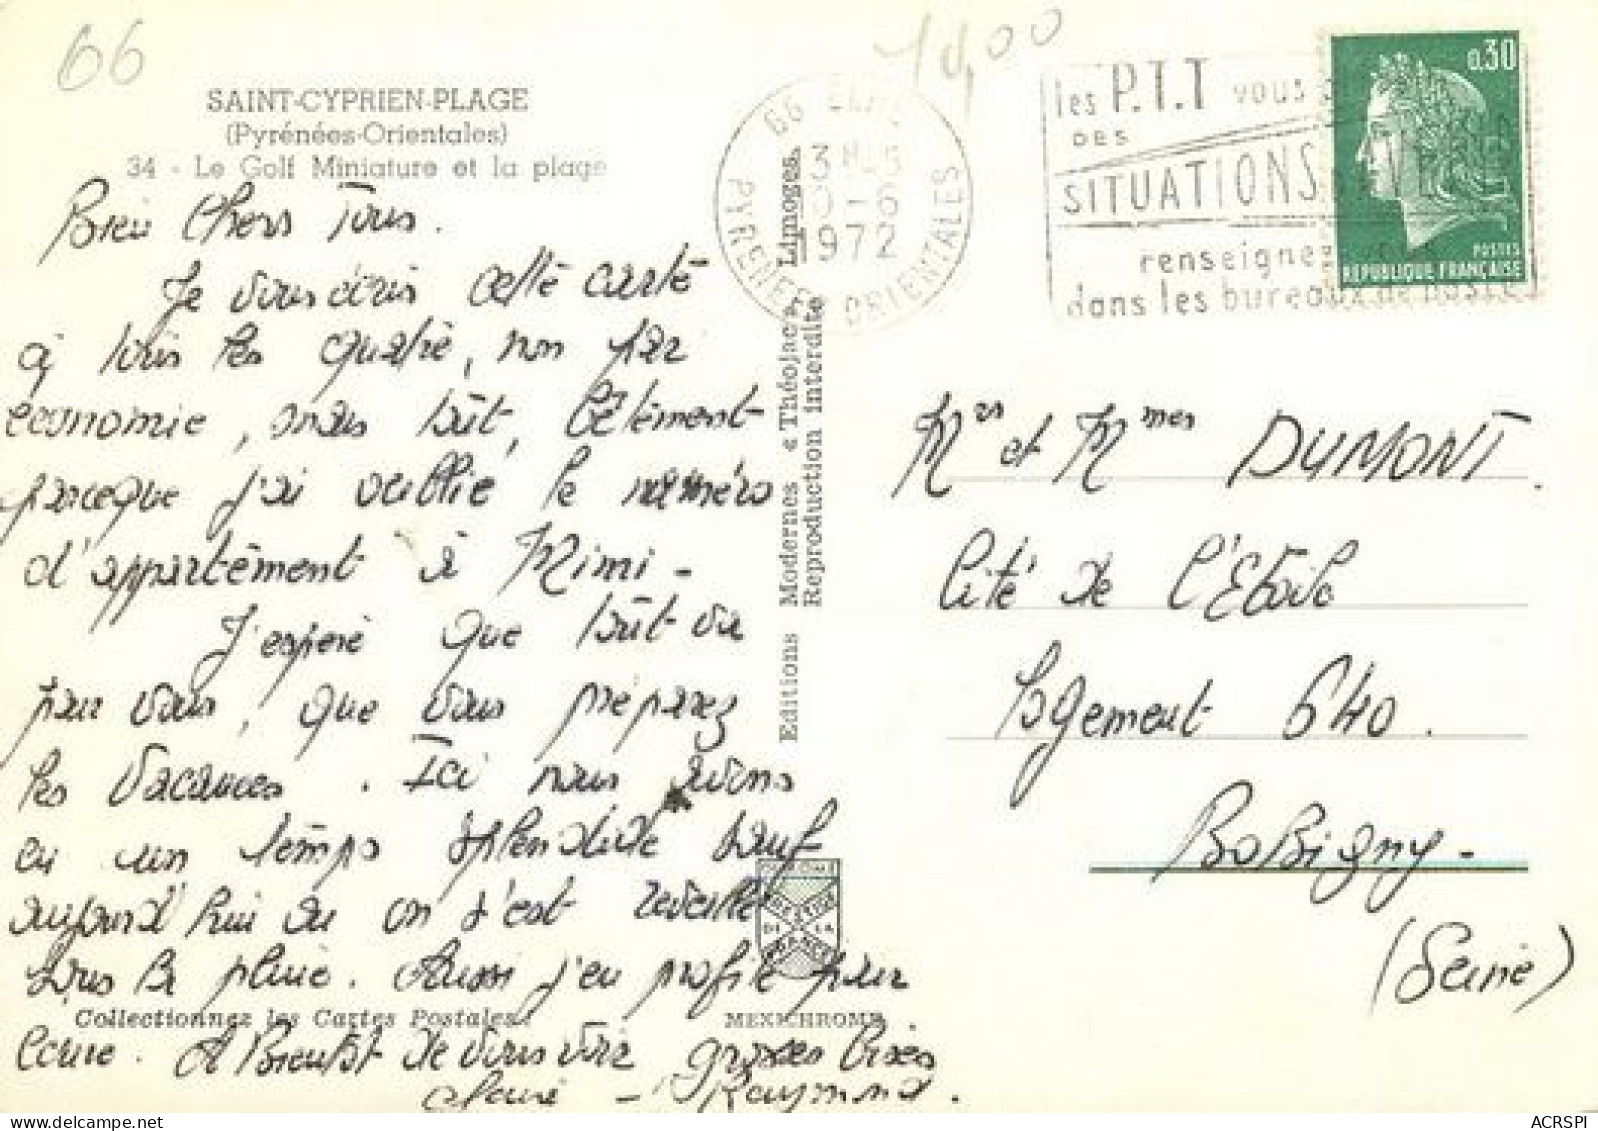 66
1d,00
SAINT-CYPRIEN-PLAGE
(Pyrénées-Orientales)
34 - Le Golf Miniature et la plage
Bien Chers Tous.
Je vous écris cette carte
à tous les quatre, non par
économie, mais tout bêtement
parceque j'ai oublié le numéro
d'appartement à Mimi -
J'espère que tout va
pour vous, que vous préparez
les vacances. Ici nous avons
eu un temps splendide sauf
aujourd'hui ou on s'est reveillé
sous la pluie. Aussi j'en profite pour
Collectionnez les Cartes Postales
MEXICHROME
écrire. A Bientôt de vous voir grosses bises
Raymond.
Editions Modernes « Théojac », Limoges.
Reproduction interdite
66
PYRENEES ORIENTALES
1972
les P.T.T vous
DES
SITUATIONS
renseignez
dans les bureaux de poste
0,30
POSTES
REPUBLIQUE FRANÇAISE
Mrs et Mmes DUMONT.
Cité de l'Etoile
Logement 640.
Bobigny -
(Seine)
DE LA
FRANCE
ACRSPI